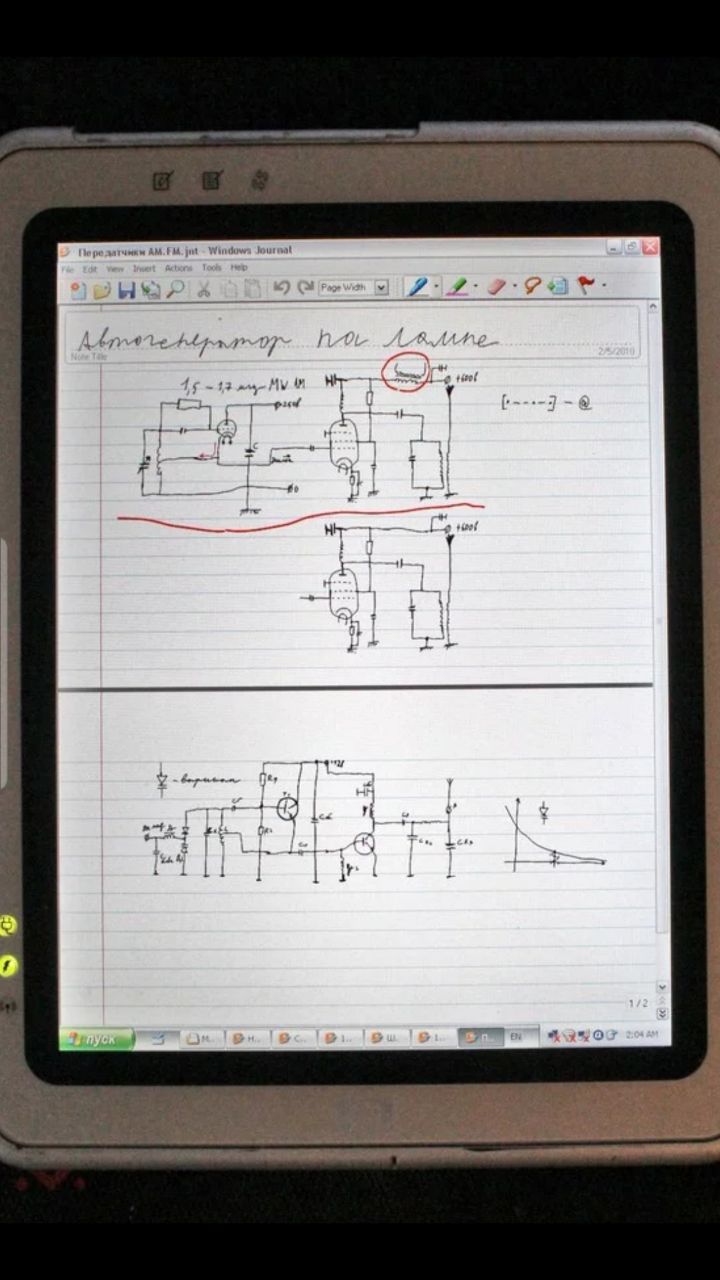 Передатчики AM.FM.jnt - Windows Journal
File Edit View Insert Actions Tools Help
Page Width
Автогенератор на лампе
Note Title
2/5/2010
1,5 - 1,7 мгц MW AM
+600в
[·----·] - @
0
C
+600в
- варикап
1/2
пуск
М..
Н..
С..
1..
Ш..
1..
П..
EN
2:04 AM